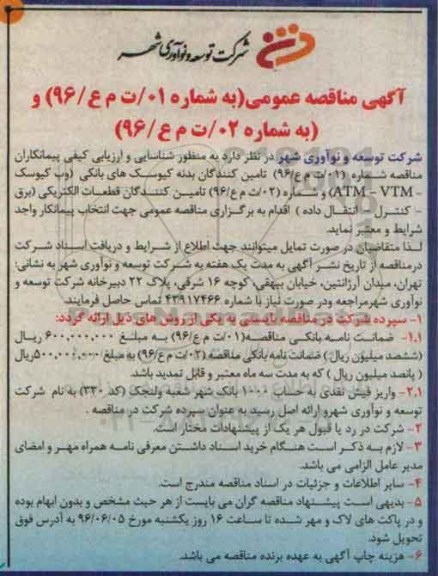 شرکت توسعه و نوآوری شهر
آگهی مناقصه عمومی(به شماره ۰۱/ت م ع/۹۶) و
(به شماره ۰۲/ت م ع/۹۶)
شرکت توسعه و نوآوری شهر در نظر دارد به منظور شناسایی و ارزیابی کیفی پیمانکاران
مناقصه شماره (۰۱/ت م ع/۹۶) تامین کنندگان بدنه کیوسک های بانکی (وب کیوسک
- ATM - VTM) و شماره (۰۲/ت م ع/۹۶) تامین کنندگان قطعات الکتریکی (برق
- کنترل - انتقال داده ) اقدام به برگزاری مناقصه عمومی جهت انتخاب پیمانکار واجد
شرایط و معتبر نماید.
لذا متقاضیان در صورت تمایل میتوانند جهت اطلاع از شرایط و دریافت اسناد شرکت
درمناقصه از تاریخ نشر آگهی به مدت یک هفته به شرکت توسعه و نوآوری شهر به نشانی:
تهران، میدان آرژانتین، خیابان بیهقی، کوچه ۱۶ شرقی، پلاک ۲۲ دبیرخانه شرکت توسعه و
نوآوری شهرمراجعه ودر صورت نیاز با شماره ۴۳۹۱۷۴۶۶ تماس حاصل فرمایند.
۱- سپرده شرکت در مناقصه بایستی به یکی از روش های ذیل ارائه گردد:
۱.۱- ضمانت نامه بانکی مناقصه(۰۱/ت م ع/۹۶) به مبلغ ۶۰۰,۰۰۰,۰۰۰ ریال
(ششصد میلیون ریال) ضمانت نامه بانکی مناقصه (۰۲/ت م ع/۹۶) به مبلغ ۵۰۰,۰۰۰,۰۰۰ریال
( پانصد میلیون ریال ) که به مدت سه ماه معتبر و قابل تمدید باشد.
۲.۱- واریز فیش نقدی به حساب ۱۰۰۰ بانک شهر شعبه ولنجک (کد ۳۳۰) به نام شرکت
توسعه و نوآوری شهرو ارائه اصل رسید به عنوان سپرده شرکت در مناقصه .
۲- شرکت در رد یا قبول هر یک از پیشنهادات مختار است.
۳- لازم به ذکر است هنگام خرید اسناد داشتن معرفی نامه همراه مهر و امضای
مدیر عامل الزامی می باشد.
۴- سایر اطلاعات و جزئیات در اسناد مناقصه مندرج است.
۵- بدیهی است پیشنهاد مناقصه گران می بایست از هر حیث مشخص و بدون ابهام بوده
و در پاکت های لاک و مهر شده تا ساعت ۱۶ روز یکشنبه مورخ ۹۶/۰۶/۰۵ به آدرس فوق
تحویل شود.
۶- هزینه چاپ آگهی به عهده برنده مناقصه می باشد.